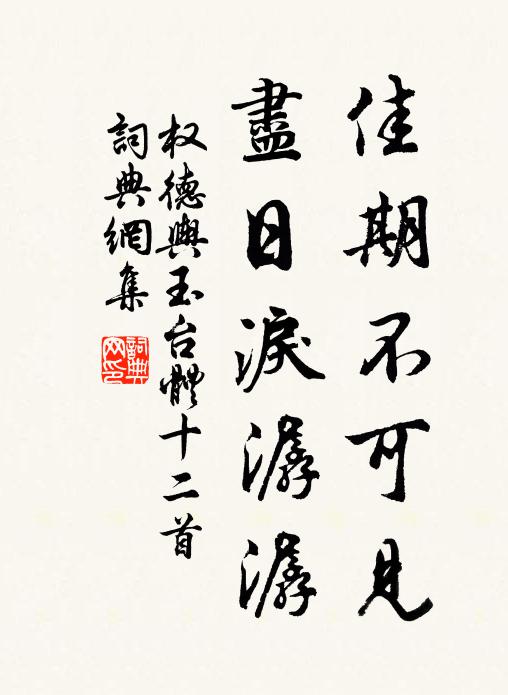 佳期不可見
盡日淚潺潺
权德輿玉台體十二首
詞典網集
詞典網印